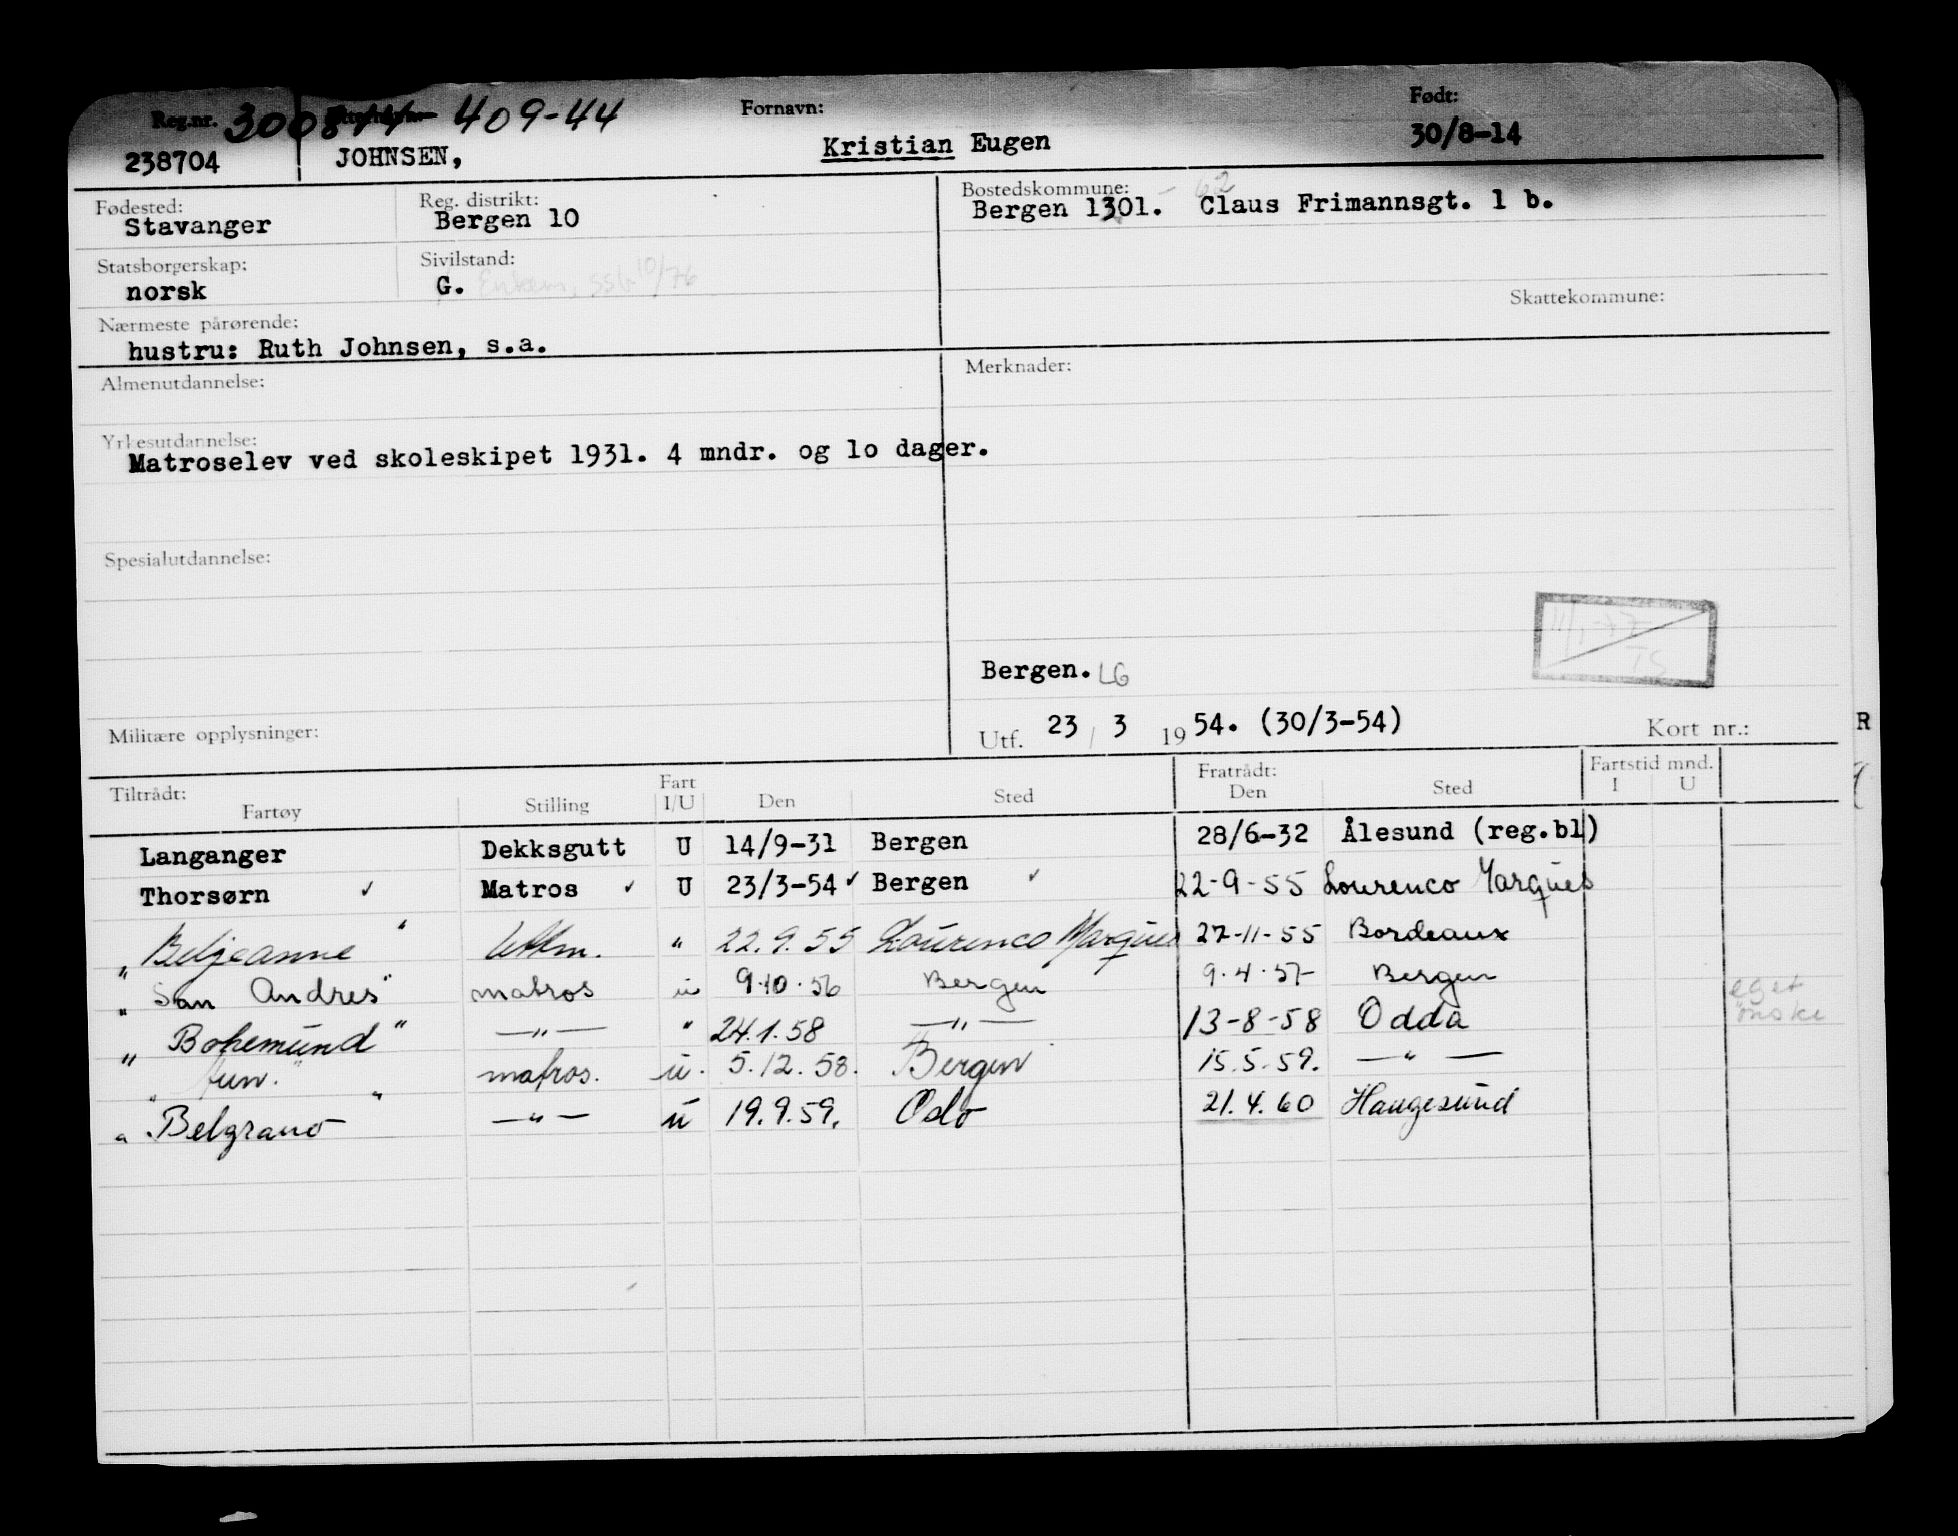 Reg.nr. 300814 409-44 Fornavn: Født:
238704 JOHNSEN, Kristian Eugen 30/8-14
Fødested: Reg. distrikt: Bostedskommune: 62
Stavanger Bergen 10 Bergen 1301. Claus Frimannsgt. 1 b.
Statsborgerskap: Sivilstand:
norsk G. Enkem. SSB 10/76
Skattekommune:
Nærmeste pårørende:
hustru: Ruth Johnsen, s.a.
Almenutdannelse: Merknader:
Yrkesutdannelse:
Matroselev ved skoleskipet 1931. 4 mndr. og lo dager.
Spesialutdannelse:
11/1-77
TS
Bergen. LG
Militære opplysninger: Utf. 23 / 3 19 54. (30/3-54) Kort nr.: R
Tiltrådt: Fart Fratrådt: Fartstid mnd.
Fartøy Stilling I/U Den Sted Den Sted I U
Langanger Dekksgutt U 14/9-31 Bergen 28/6-32 Ålesund (reg.bl)
Thorsørn ✓ Matros ✓ U 23/3-54 ✓ Bergen ✓ 22-9-55 Lourenco Marques
"Beljeanne" " 22.9.55 Lourenco Marques 27-11-55 Bordeaux
"San Andres" matros u 9.10.56 Bergen 9.4.57 Bergen eget
"Bohemund" —"— " 24.1.58 —"— 13-8-58 Odda ønske
matros. u. 5.12.58. Bergen 15.5.59. —"—
"Belgrano" —"— u 19.9.59. Oslo 21.4.60 Haugesund